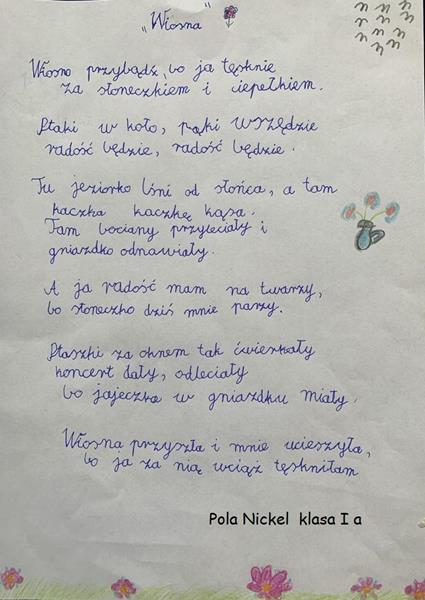 „Wiosna"
Wiosno przybądź, bo ja tęsknie
za słoneczkiem i ciepełkiem.
Ptaki w koło, pąki wszędzie
radość będzie, radość będzie.
Tu jeziorko lśni od słońca, a tam
kaczka kaczkę kąsa.
Tam bociany przyleciały i
gniazdko odnawiały.
A ja radość mam na twarzy,
bo słoneczko dziś mnie parzy.
Ptaszki za oknem tak ćwierkały
koncert dały, odleciały
bo jajeczka w gniazdku miały.
Wiosna przyszła i mnie ucieszyła,
bo ja za nią wciąż tęskniłam
Pola Nickel klasa I a